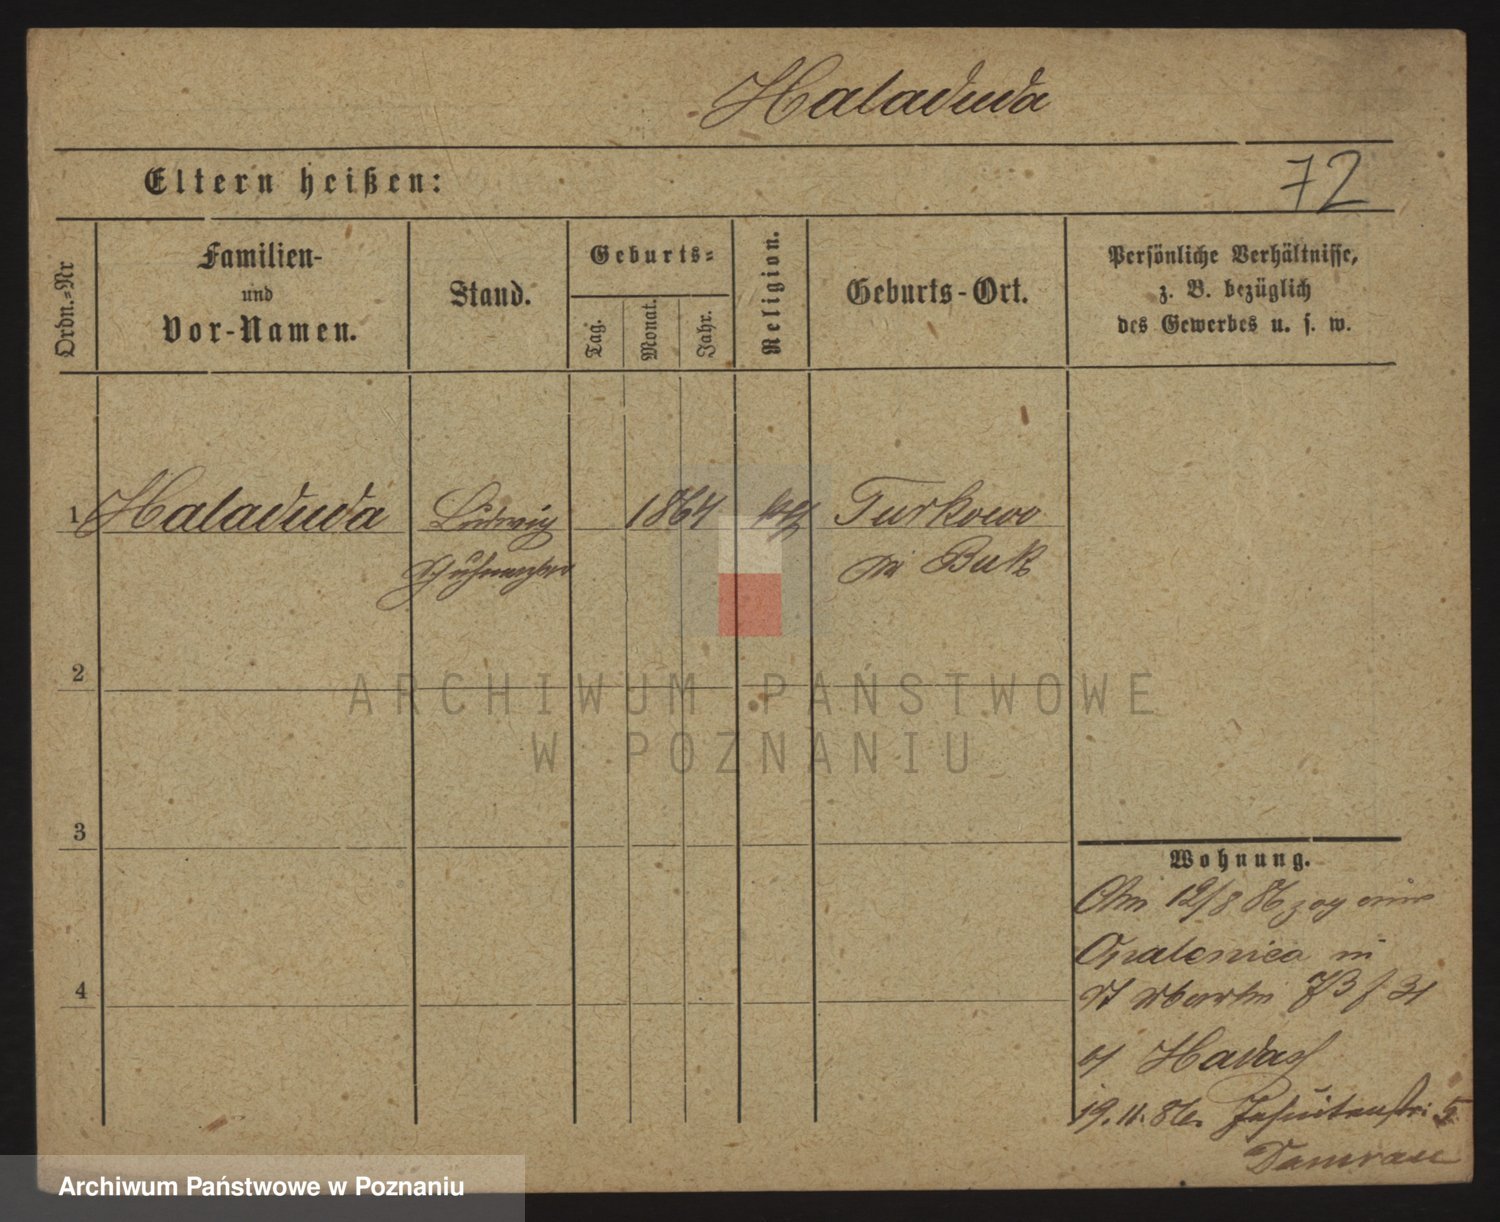 Haladuda
Eltern heißen:
72
Ordn.-Nr
Familien-
und
Vor-Namen.
Stand.
Geburts-
Tag.
Monat.
Jahr.
Religion.
Geburts-Ort.
Persönliche Verhältnisse,
z. B. bezüglich
des Gewerbes u. s. w.
1 Haladuda Ludwig 1864 kth Turkowo
Buk
2
3
4
Wohnung.
Am 12/8 86 zog
Opalenica in
St Martin 73 f 31
Hadasch
19.11.86. Jesuitenstr: 5
Damrau
ARCHIWUM PAŃSTWOWE
W POZNANIU
Archiwum Państwowe w Poznaniu